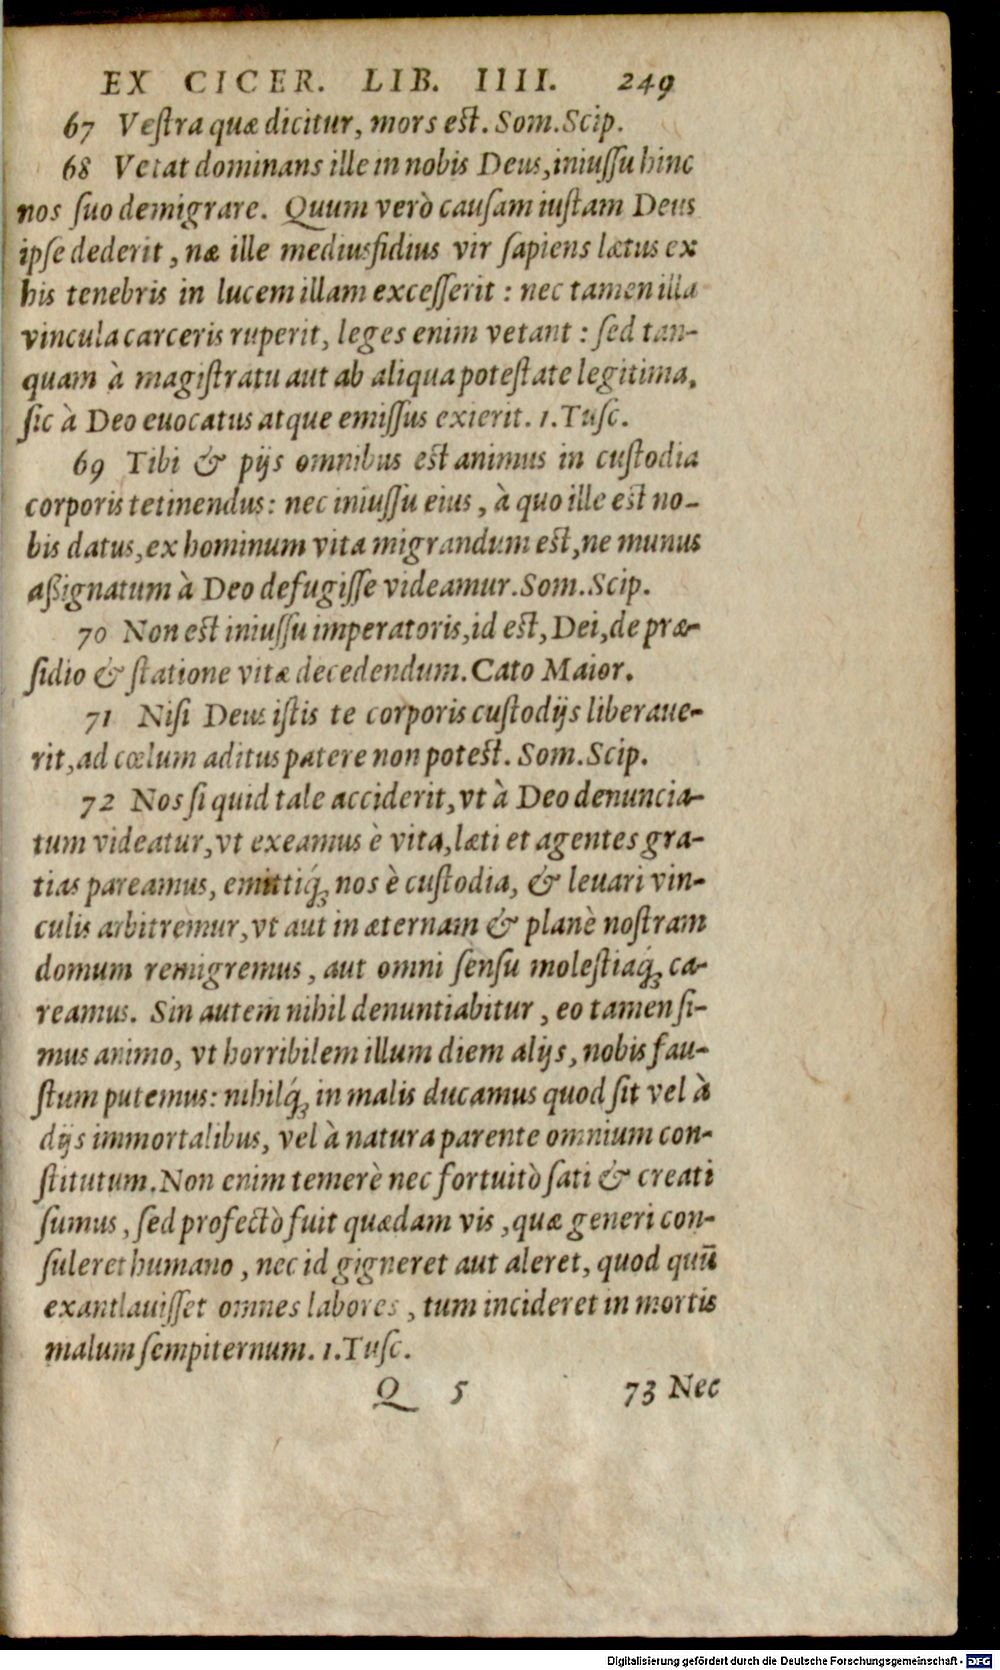 EX CICER. LIB. IIII. 249
67 Veſtra quæ dicitur, mors est. Som.Scip.
68 Vetat dominans ille in nobis Deus, iniuſſu hinc
nos ſuo demigrare. Quum verò cauſam iuſtam Deus
ipſe dederit, næ ille mediusfidius vir ſapiens lætus ex
his tenebris in lucem illam exceſſerit : nec tamen illa
vincula carceris ruperit, leges enim vetant : ſed tan-
quam à magiſtratu aut ab aliqua poteſtate legitima,
ſic à Deo euocatus atque emiſſus exierit. 1.Tuſc.
69 Tibi & pijs omnibus est animus in cuſtodia
corporis tetinendus: nec iniuſſu eius, à quo ille est no-
bis datus, ex hominum vita migrandum est, ne munus
aßignatum à Deo defugiſſe videamur. Som.Scip.
70 Non est iniuſſu imperatoris, id est, Dei, de præ-
ſidio & ſtatione vitæ decedendum. Cato Maior.
71 Niſi Deus iſtis te corporis cuſtodijs liberaue-
rit, ad cœlum aditus patere non potest. Som.Scip.
72 Nos ſi quid tale acciderit, vt à Deo denuncia-
tum videatur, vt exeamus è vita, læti et agentes gra-
tias pareamus, emittiq́; nos è cuſtodia, & leuari vin-
culis arbitremur, vt aut in æternam & planè noſtram
domum remigremus, aut omni ſenſu moleſtiaq́; ca-
reamus. Sin autem nihil denuntiabitur, eo tamen ſi-
mus animo, vt horribilem illum diem alijs, nobis fau-
ſtum putemus: nihilq́; in malis ducamus quod ſit vel à
dijs immortalibus, vel à natura parente omnium con-
ſtitutum. Non enim temerè nec fortuitò ſati & creati
ſumus, ſed profectò fuit quædam vis, quæ generi con-
ſuleret humano, nec id gigneret aut aleret, quod quū
exantlauiſſet omnes labores, tum incideret in mortis
malum ſempiternum. 1.Tuſc.
Q 5 73 Nec
Digitalisierung gefördert durch die Deutsche Forschungsgemeinschaft - DFG